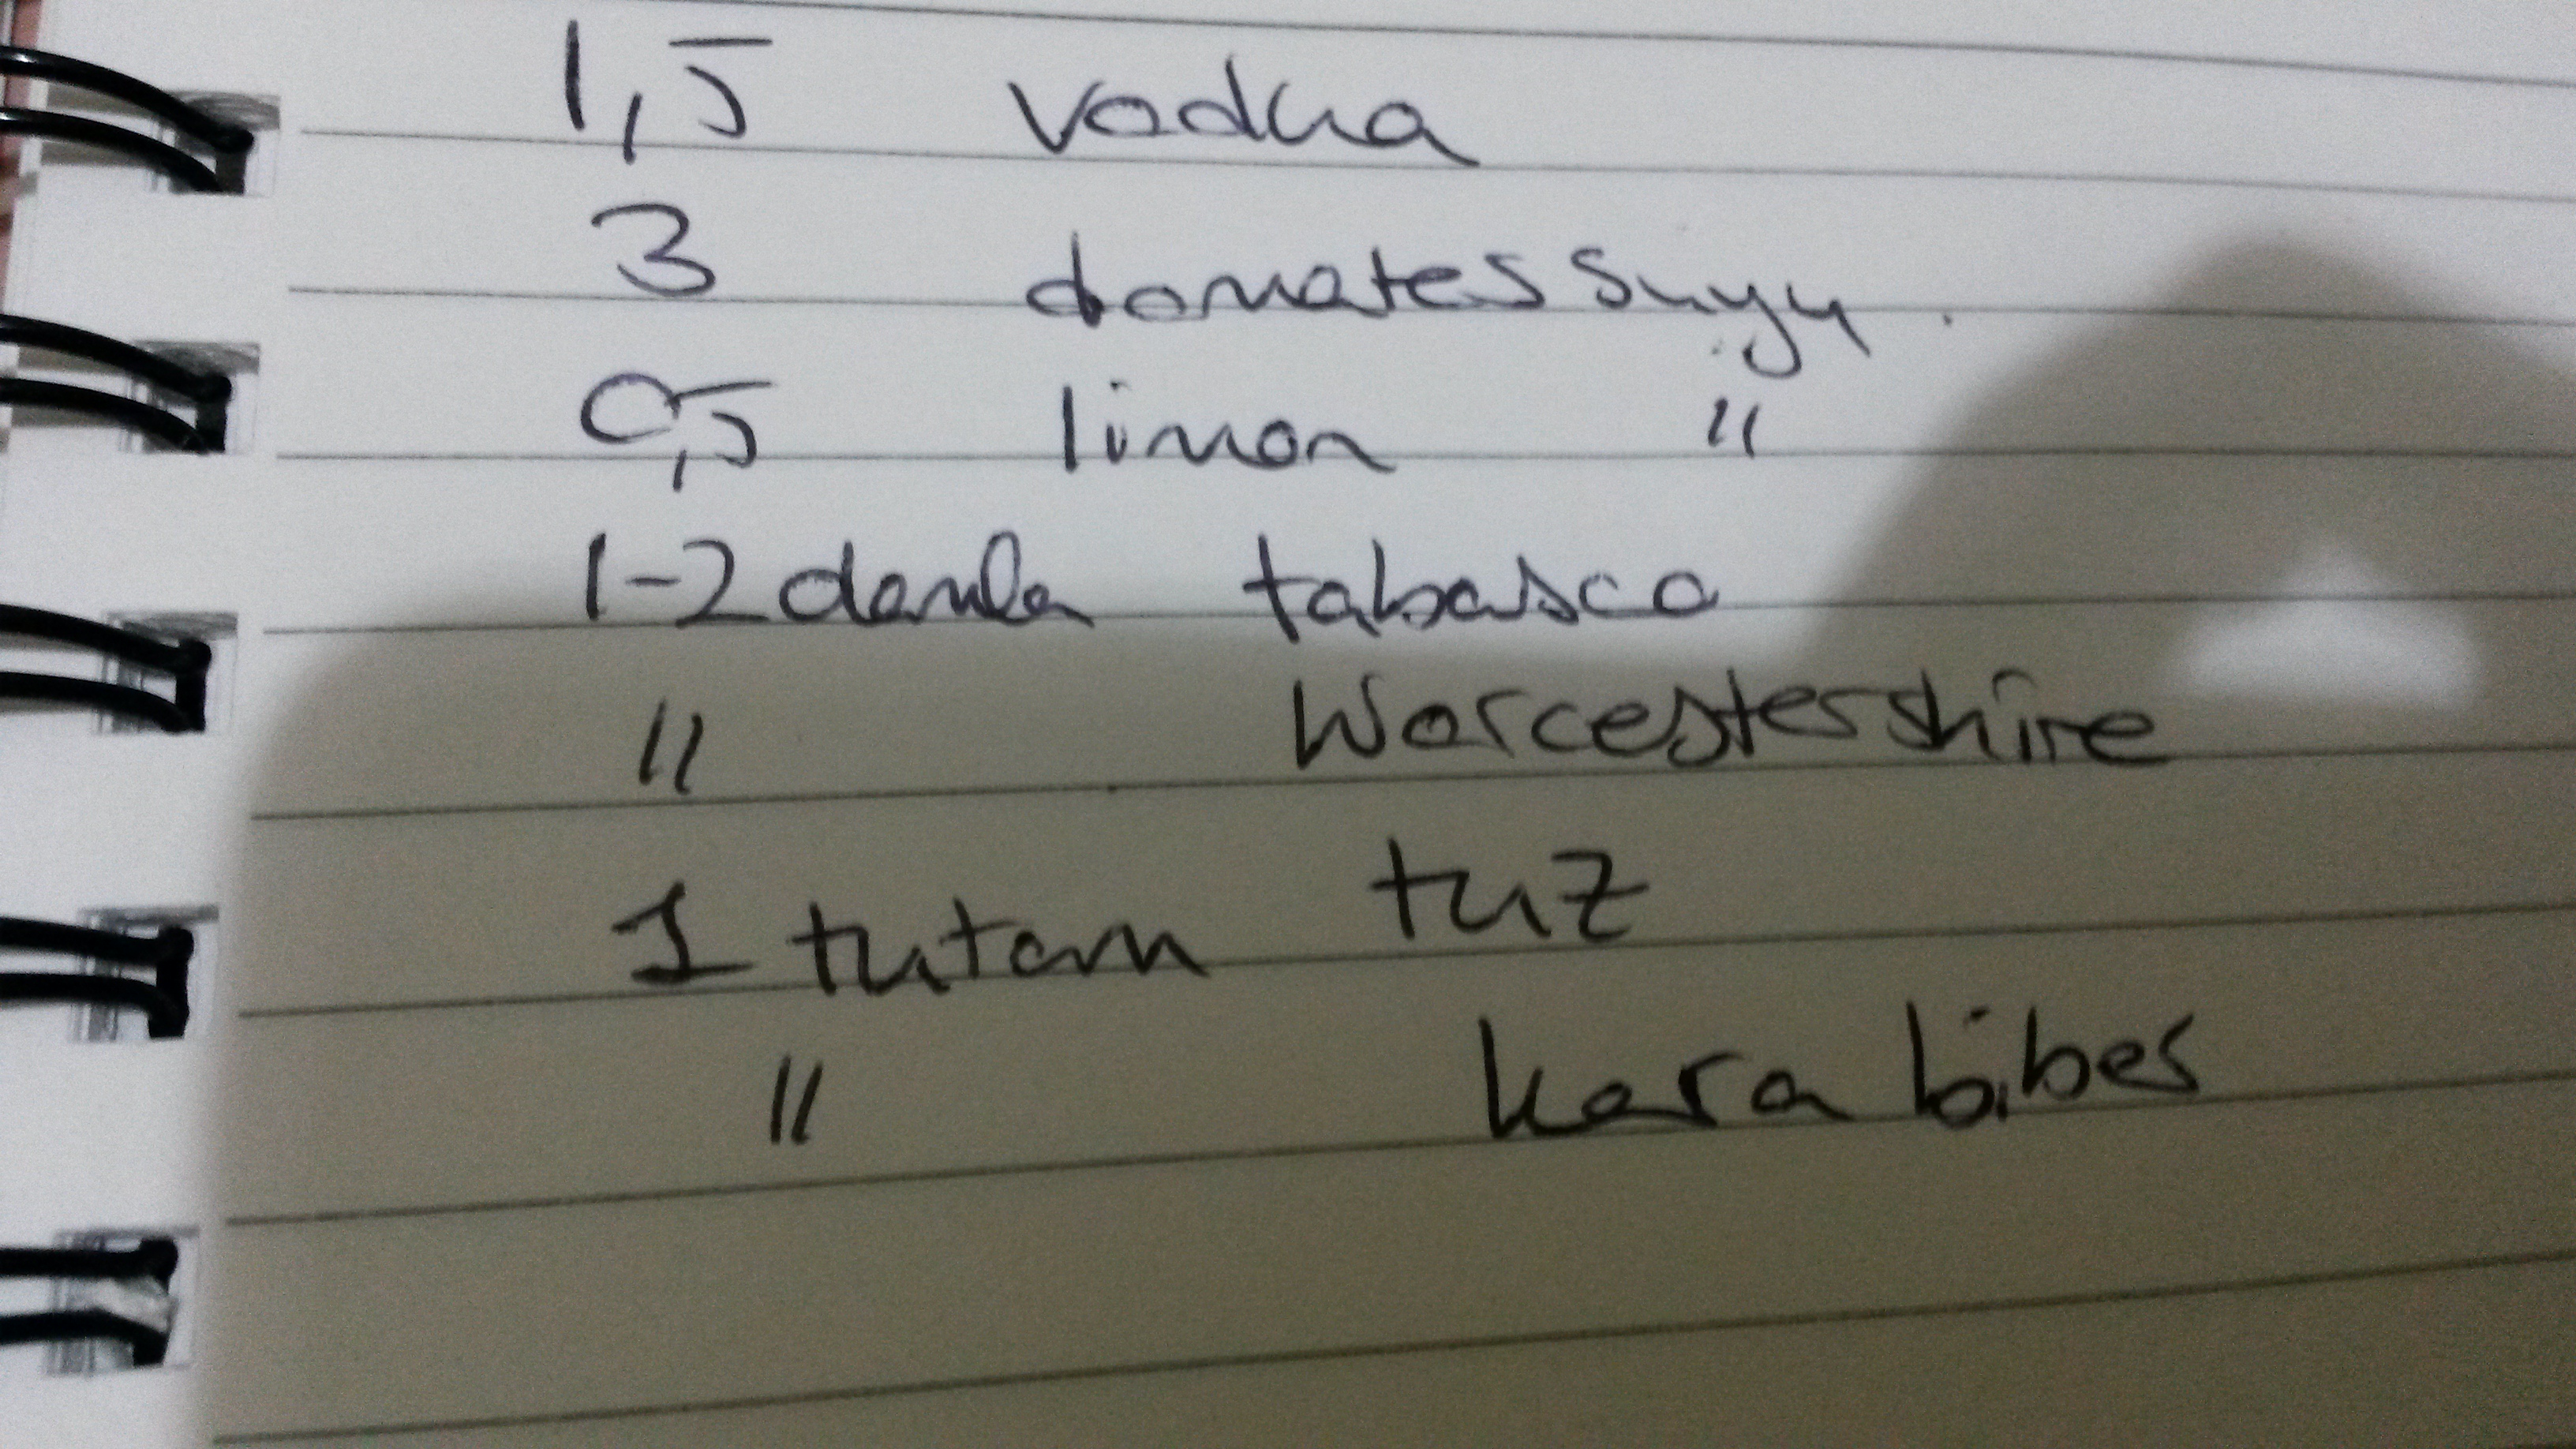 1,5 vodka
3 domates suyu.
0,5 limon "
1-2 damla tabasco
" Worcestershire
1 tutam tuz
" kara biber